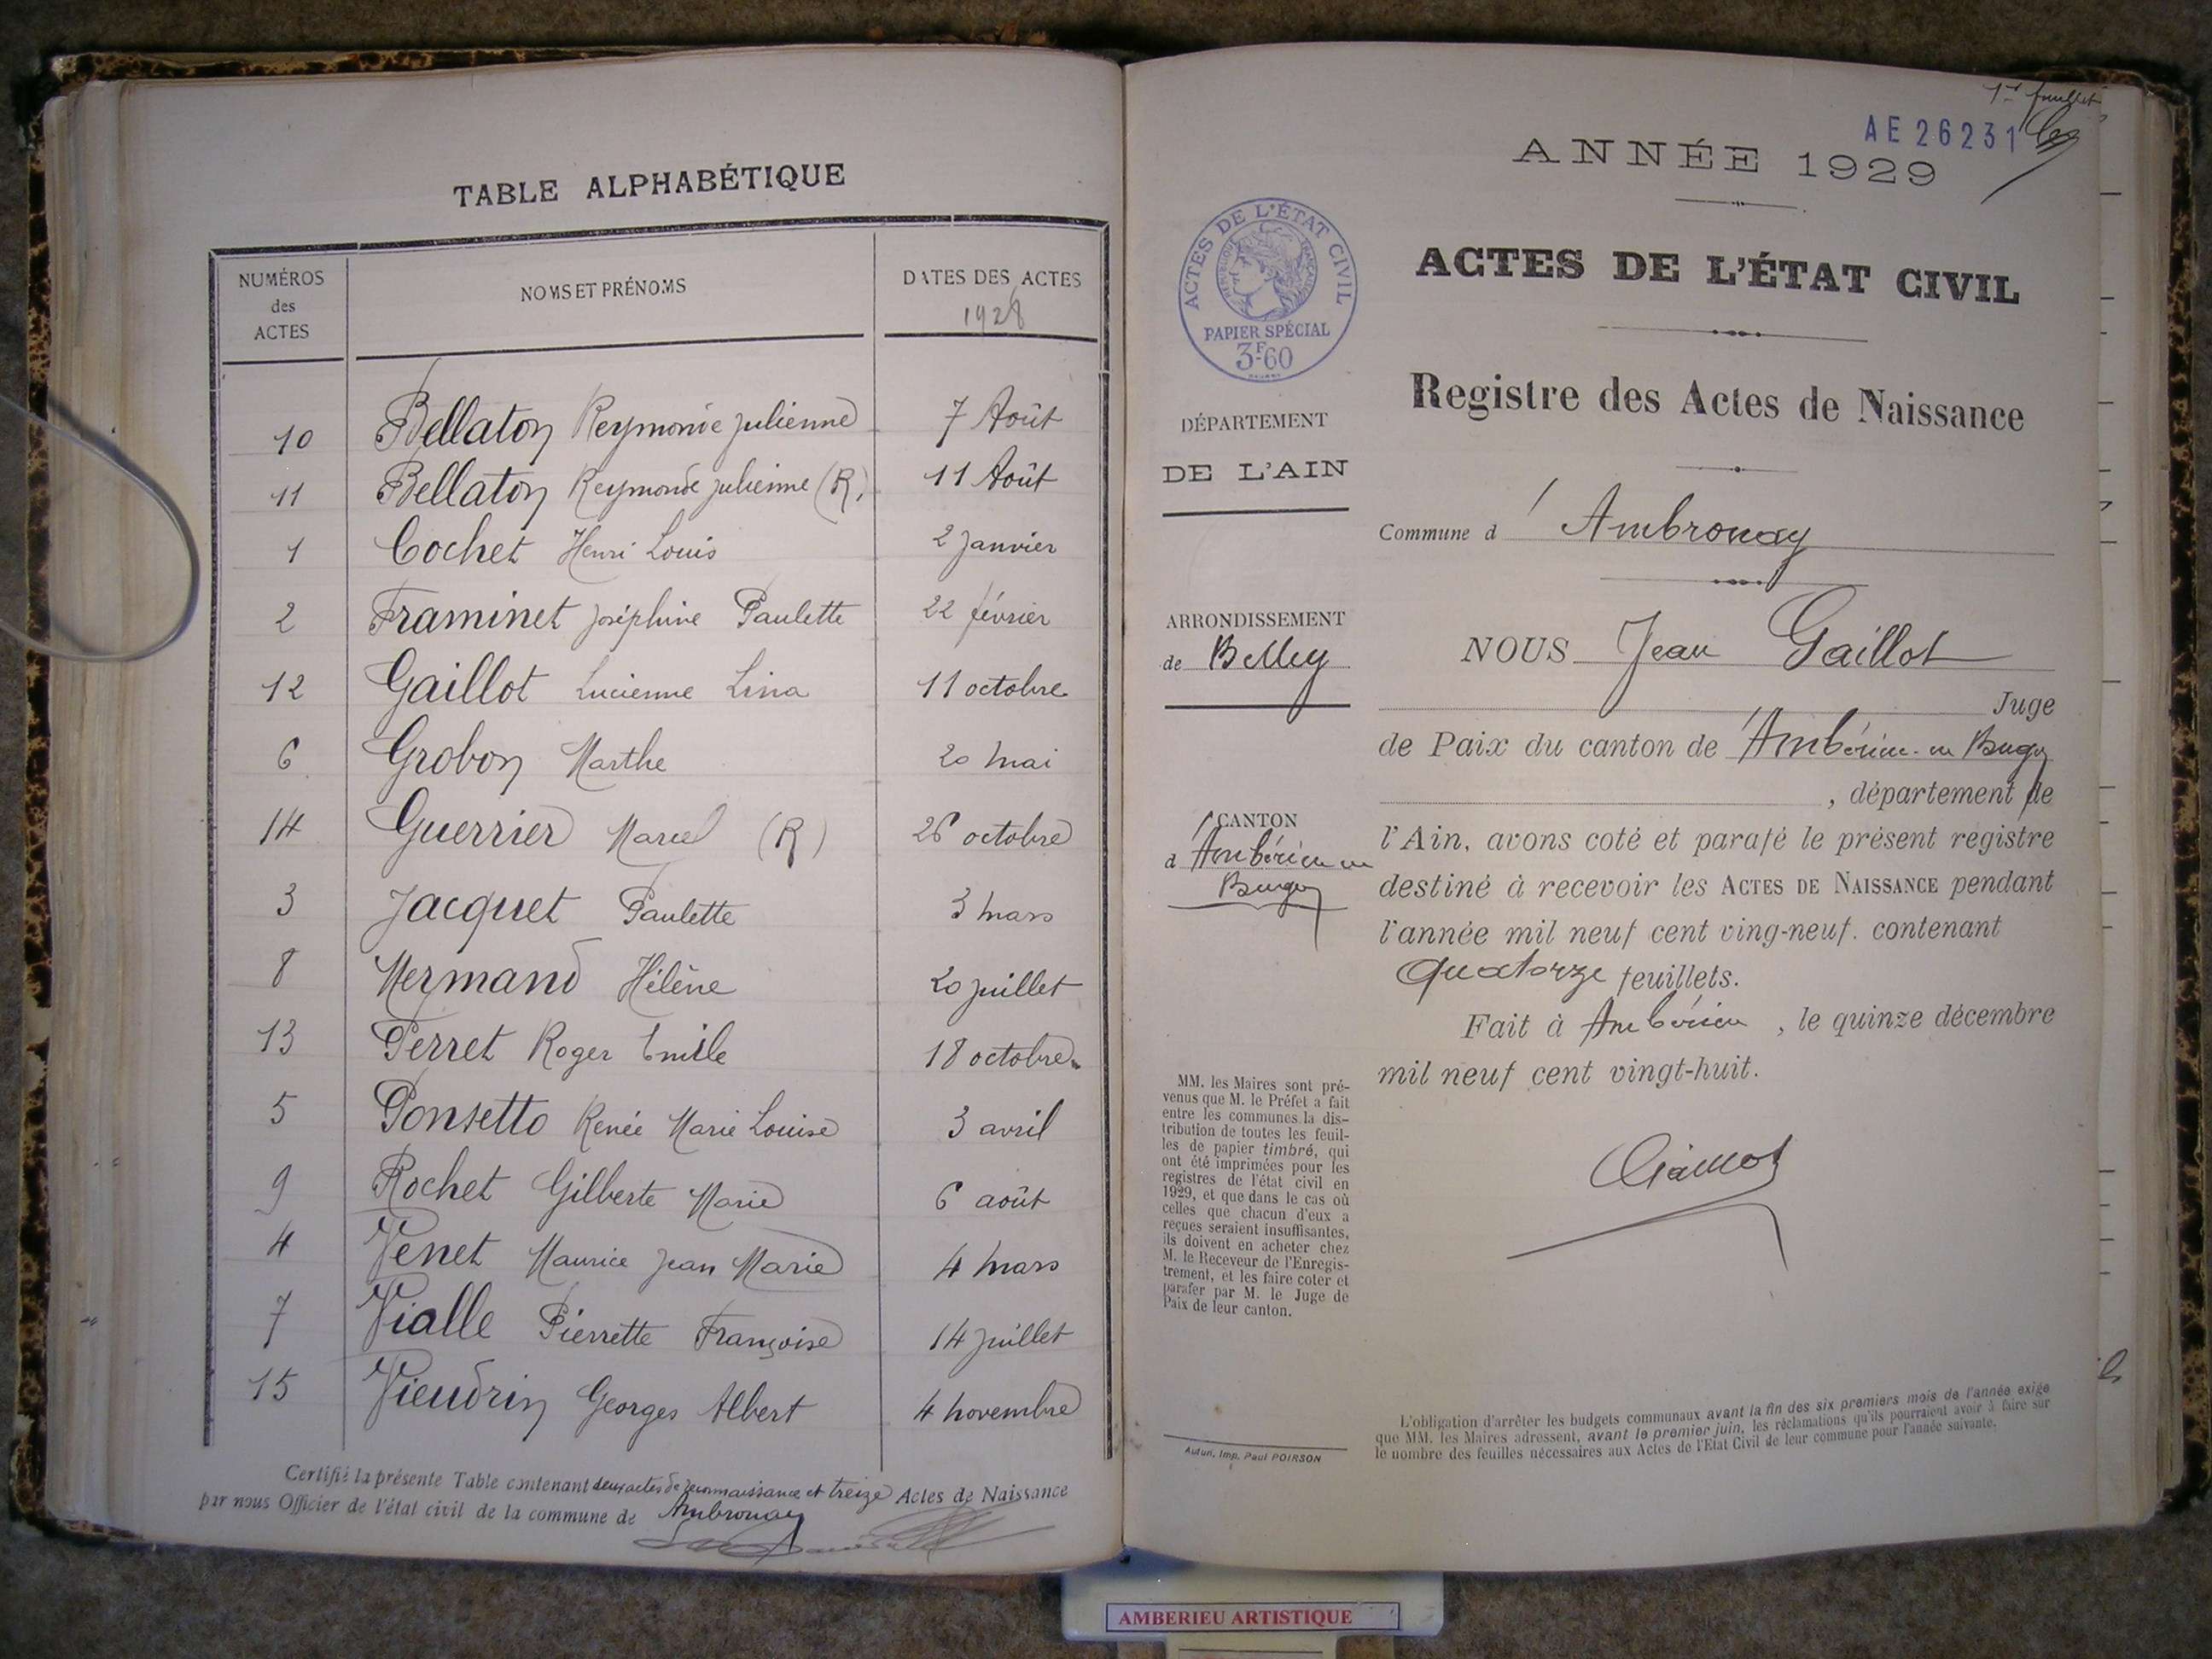 TABLE ALPHABÉTIQUE
NUMÉROS des ACTES
NOMS ET PRÉNOMS
DATES DES ACTES
1928
10 Bellaton Reymonde Julienne 7 Août
11 Bellaton Reymonde Julienne (R) 11 Août
1 Cochet Henri Louis 2 Janvier
2 Framinet Joséphine Paulette 22 février
12 Gaillot Lucienne Lina 11 octobre
6 Grobon Marthe 20 mai
14 Guerrier Marcel (R) 26 octobre
3 Jacquet Paulette 3 mars
8 Mermand Hélène 20 juillet
13 Perret Roger Emile 18 octobre
5 Ponsetto Renée Marie Louise 3 avril
9 Rochet Gilberte Marie 6 août
4 Venet Maurice Jean Marie 4 mars
7 Vialle Pierrette Françoise 14 juillet
15 Vieudrin Georges Albert 4 novembre
Certifié la présente Table contenant deux actes de reconnaissance et treize Actes de Naissance
par nous Officier de l'état civil de la commune de Ambronay
1er feuillet
AE 26231
ANNÉE 1929
ACTES DE L'ÉTAT CIVIL
RÉPUBLIQUE FRANÇAISE
PAPIER SPÉCIAL
3F60
ACTES DE L'ÉTAT CIVIL
Registre des Actes de Naissance
DÉPARTEMENT
DE L'AIN
Commune d' Ambronay
ARRONDISSEMENT
de Belley
NOUS Jean Gaillot
Juge
de Paix du canton de Ambérieu-en Bugey
, département de
CANTON
d'Ambérieu en
Bugey
l'Ain, avons coté et parafé le présent registre
destiné à recevoir les ACTES DE NAISSANCE pendant
l'année mil neuf cent ving-neuf. contenant
quatorze feuillets.
Fait à Ambérieu, le quinze décembre
mil neuf cent vingt-huit.
MM. les Maires sont pré-
venus que M. le Préfet a fait
entre les communes la dis-
tribution de toutes les feuil-
les de papier timbré, qui
ont été imprimées pour les
registres de l'état civil en
1929, et que dans le cas où
celles que chacun d'eux a
reçues seraient insuffisantes,
ils doivent en acheter chez
M. le Receveur de l'Enregis-
trement, et les faire coter et
parafer par M. le Juge de
Paix de leur canton.
Gaillot
L'obligation d'arrêter les budgets communaux avant la fin des six premiers mois de l'année exige
que MM. les Maires adressent, avant le premier juin, les réclamations qu'ils pourraient avoir à faire sur
le nombre des feuilles nécessaires aux Actes de l'Etat Civil de leur commune pour l'année suivante.
Autun, Imp. Paul POIRSON
AMBERIEU ARTISTIQUE